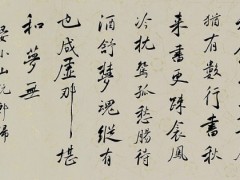 猶有數行書秋
来書更疎衾鳳
冷枕鴛孤愁腸待
酒舒夢魂縱有
也成虛那堪
和夢無
晏小山阮郎歸